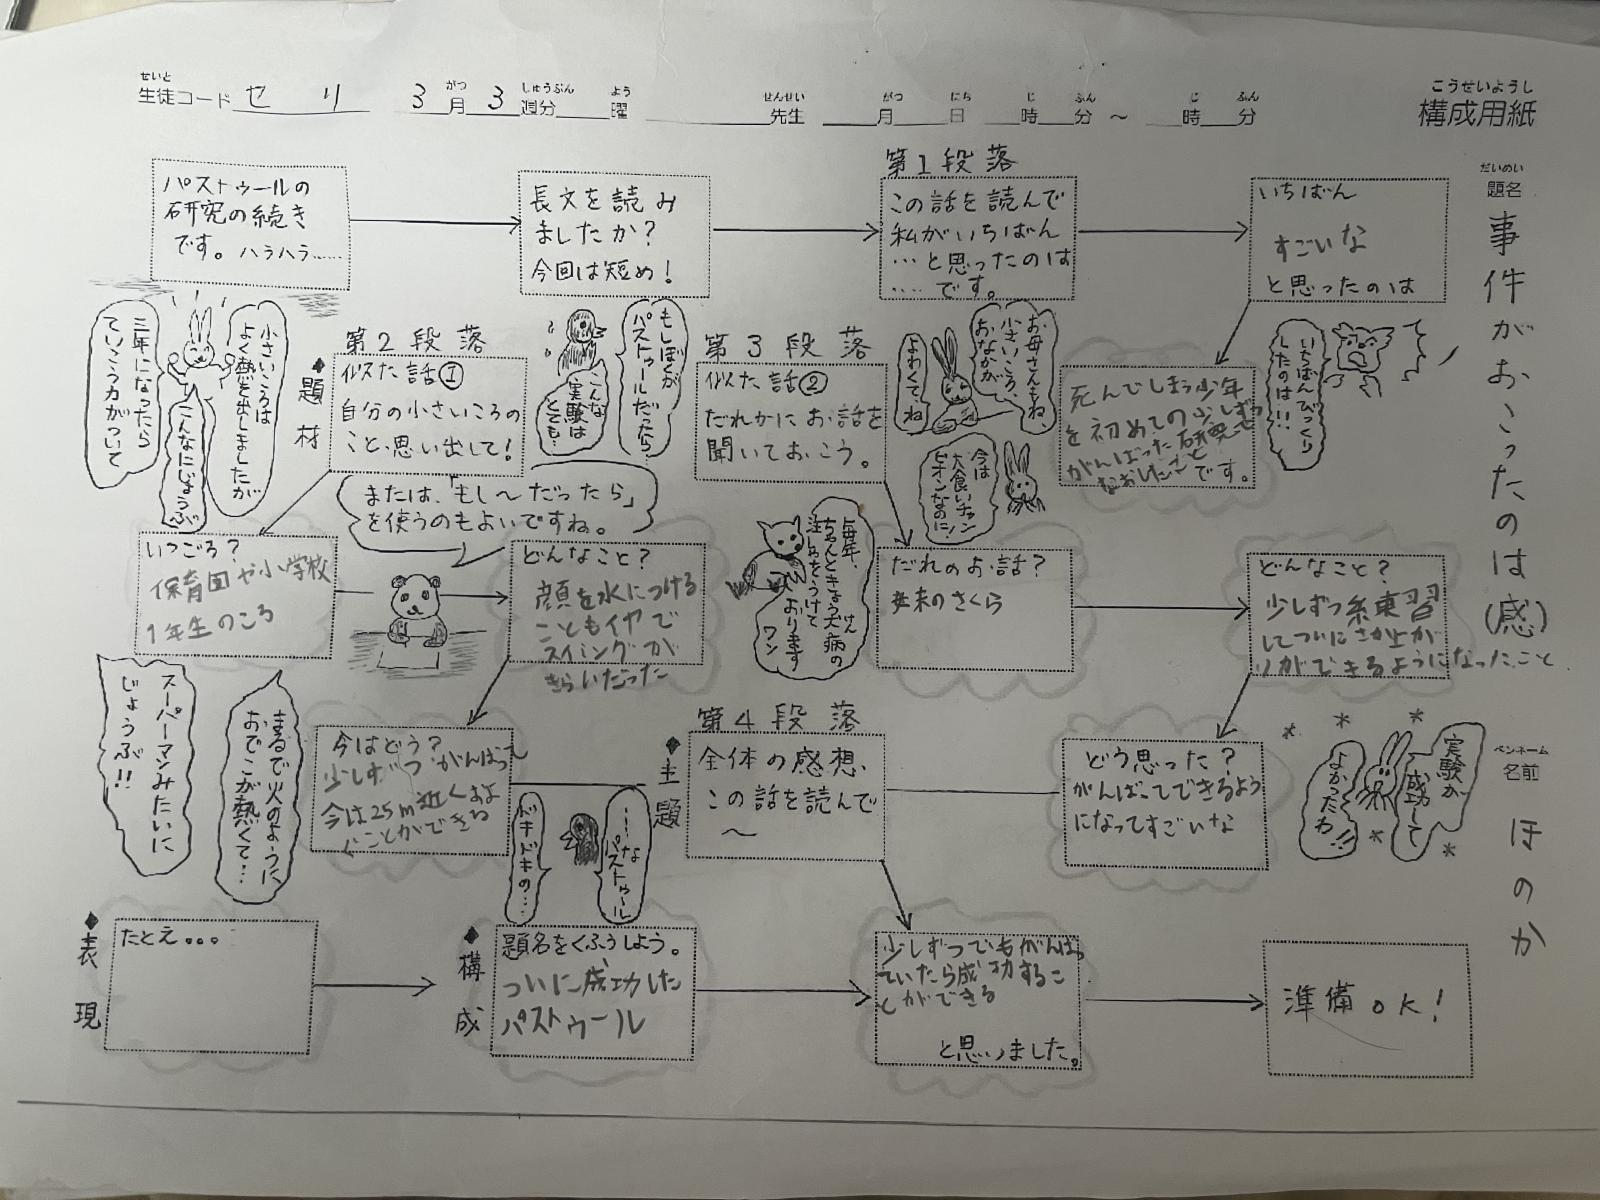 せいと がつ しゅうぶん よう せんせい がつ にち じ ふん じ ふん
生徒コード セリ 3月3週分 曜 先生 月 日 時 分 ～ 時 分
こうせいようし
構成用紙
だいめい
題名
事件がおこったのは(感)
ペンネーム
名前
ほのか
パストゥールの
研究の続き
です。ハラハラ……
長文を読み
ましたか?
今回は短め!
第1段落
この話を読んで
私がいちばん
…と思ったのは
……です。
いちばん
すごいな
と思ったのは
いちばんびっくり
したのは!!
死んでしまう少年
を初めての少しずつ
がんばった研究で
なおしたこと
です。
◆題材
小さいころは
よく熱を出しましたが
三年になったら
ていこう力がついて
こんなにじょうぶ
第2段落
似た話①
自分の小さいころの
こと、思い出して!
または、「もし～だったら」
を使うのもよいですね。
もしぼくが
パストゥールだったら
こんな
実験は
とても…
いつごろ?
保育園や小学校
1年生のころ
どんなこと?
顔を水につける
こともイヤで
スイミングが
きらいだった
今はどう?
少しずつがんばって
今は25m近くおよ
ぐことができる
第3段落
似た話②
だれかにお話を
聞いておこう。
お母さんもね、
小さいころ、
おなかが
よわくて、ね
今は
大食いチャン
ピオンなのに!
毎年、
ちゃんときょう犬病の
けん
注しゃをうけて
おります
ワン
だれのお話?
年末のさくら
どんなこと?
少しずつ練習
してついにさか上が
りができるようになったこと
どう思った?
がんばってできるよう
になってすごいな
実験が
成功して
よかったわ!!
◆主題
第4段落
全体の感想、
この話を読んで
～
少しずつでもがんばっ
ていたら成功するこ
とができる
と思いました。
まるで火のように
おでこが熱くて…
スーパーマンみたいに
じょうぶ!!
◆表現
たとえ。。。
◆構成
……な
パストゥール
ドキドキの…
題名をくふうしよう。
ついに成功した
パストゥール
準備OK!